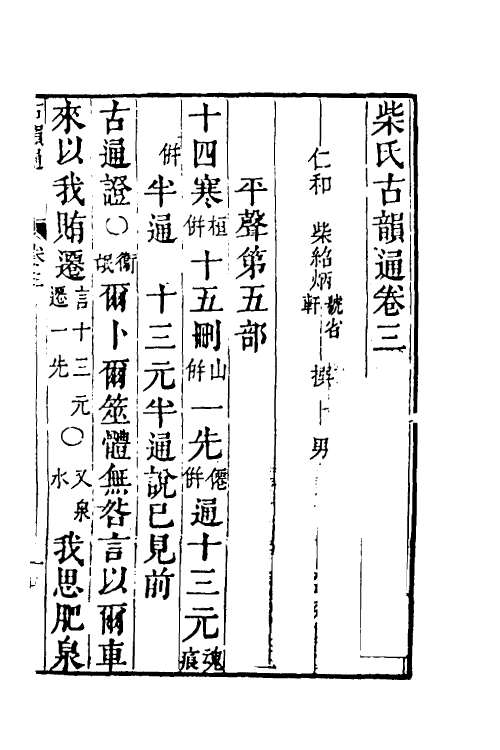 柴氏古韻通卷三
仁和 柴紹炳號省軒 撰 男
平聲第五部
十四寒桓併十五刪山併一先僊併通十三元魂痕
併半通 十三元半通說已見前
古通證〇衛氓爾卜爾筮體無咎言以爾車
來以我賄遷言十三元遷一先〇又泉水我思肥泉
古韻通 卷三